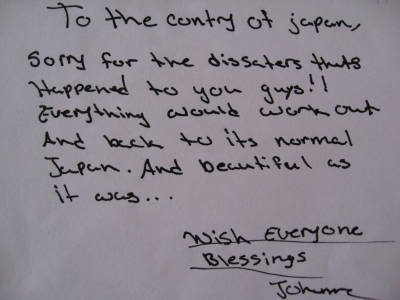 To the contry of japan,
Sorry for the dissaters thats
Happened to you guys!!
Everything would work out
And back to its normal
Japan. And beautiful as
it was...
Wish Everyone
Blessings